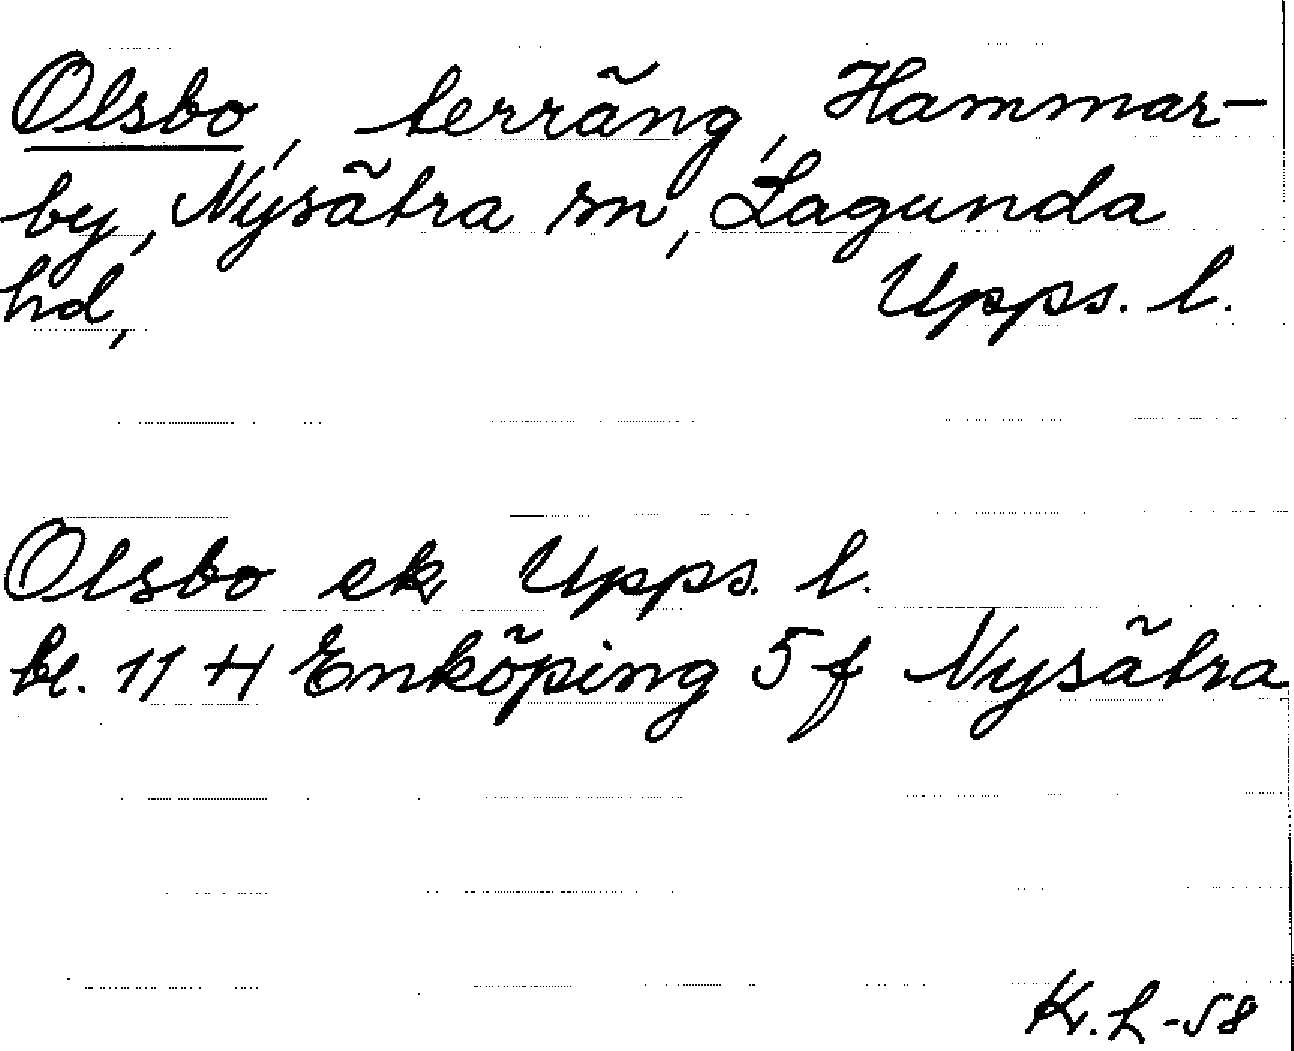 Olsbo, terräng, Hammar-
by, Nysätra sn, Lagunda
hd, Upps. l.
Olsbo ek, Upps. l.
bl. 11 H Enköping 5 f Nysätra
K. L -58